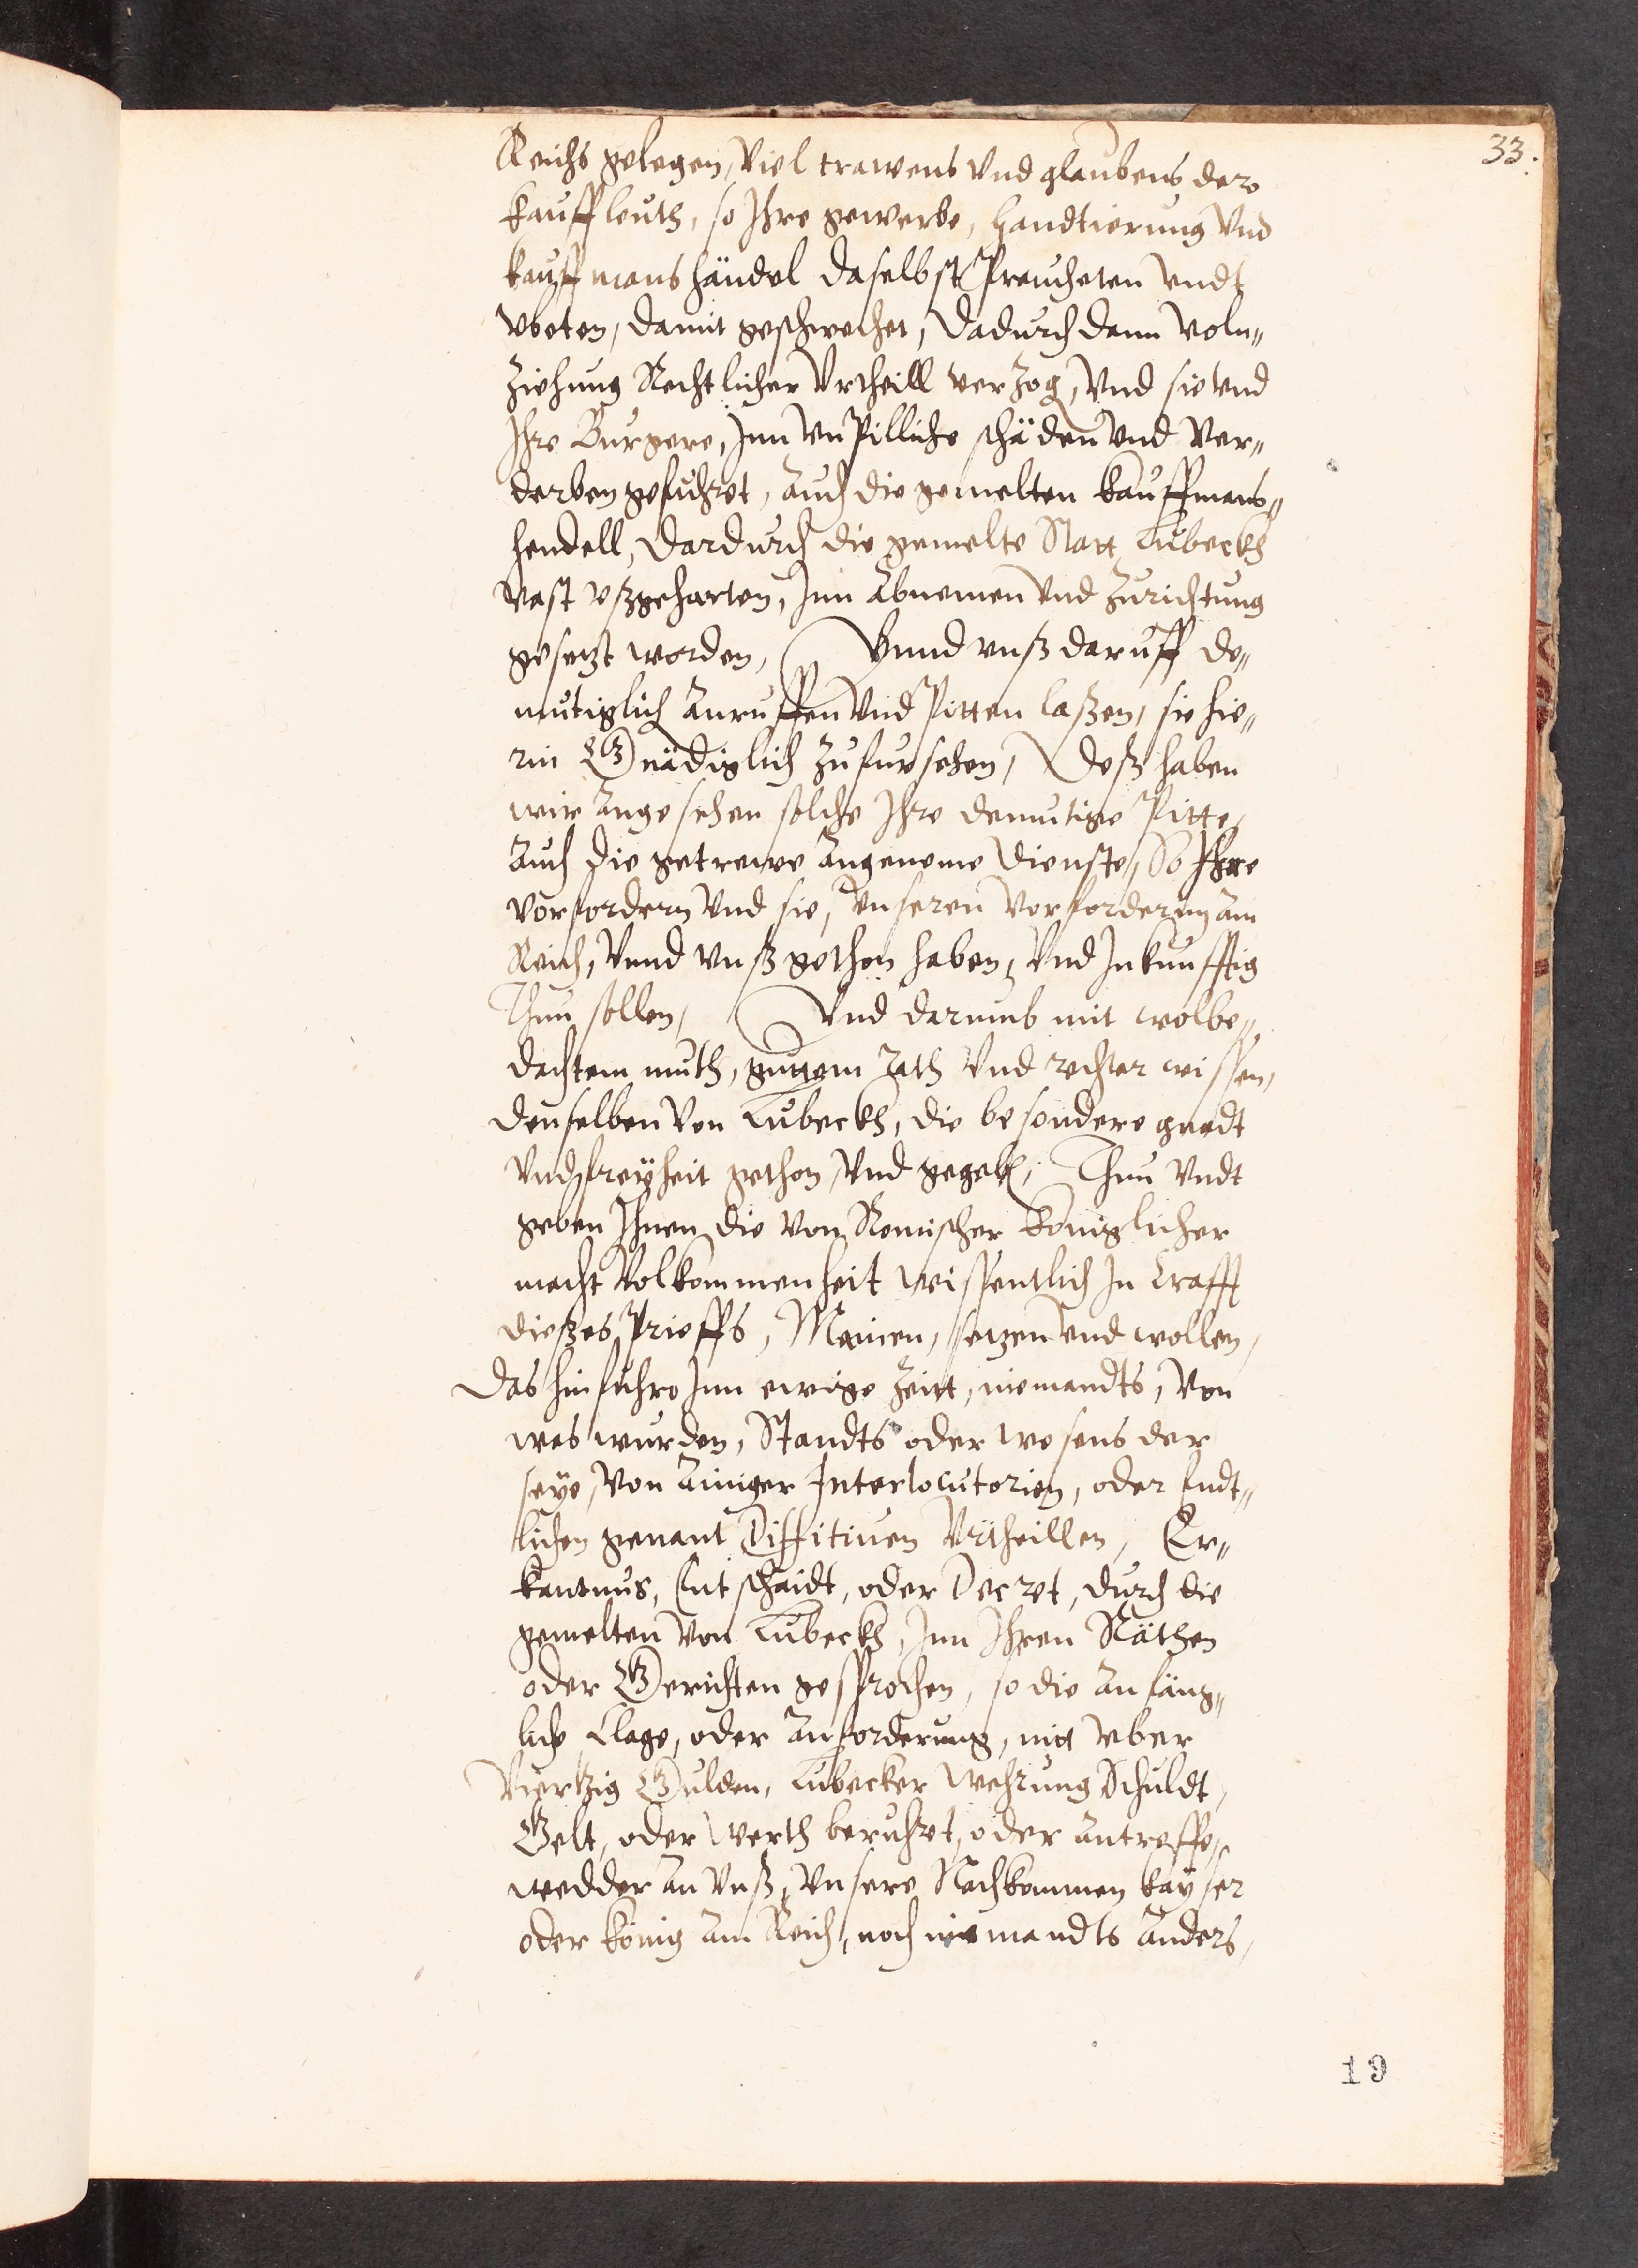 33.
Reichs gelegen, Viel trawens Vnd glaubens der
kauffleuth, so Ihre gewerbe, Handtierung Vnd
kauffmans händel daselbst Praucheten Vndt
Vbeten, damit geschwechet, Dadurch dann Voln„
ziehung Rechtlicher Vrtheill verzog, Vnd sie vnd
Ihre Burgere, Inn VnPilliche schäden Vnd Ver„
derben gefuhret, Auch die gemelten kauffmans„
hendell, Dardurch die gemelte Statt Lübeckh
Vast vßgeharten, Inn Abnemen Vnd Zurichtung
gesetzt worden, Vnnd vnß daruff de„
mutiglich Anruffen Vnd Pitten laßen, sie hie„
rin Gnädiglich Zufursehen, Deß haben
wir Angesehen solche Ihre demutige Pitte,
Auch die getrewe Angeneme Dienste, So Ihre
Vorfordern Vnd sie, Vnseren Vorfordern am
Reich, Vnnd Vnß gethon haben, Vnd Inkunfftig
Thun sollen, Vnd darumb mit wolbe„
dachtem muth, guttem Rath Vnd rechter wissen,
denselben Von Lübeckh, die besondere gnadt
Vnd freyheit gethon, Vnd gegeben, Thun Vndt
geben Ihnen die Von Romischer Königlicher
macht Volkommenheit wissentlich In Crafft
dießes Prieffs, Mainen, setzen Vnd wollen,
Das hinfuhro Inn ewige Zeitt, niemandts, Von
was wurden, Standts oder wesens der
seye, Von Ainiger Interlocutorien, oder Endt„
lichen genant Diffitiuen Vrtheillen, Er„
kantnus, Entschaidt, oder Decret, durch die
gemelten Von Lübeckh, Inn Ihren Räthen
oder Gerichten gesprochen, so die Anfäng„
liche Clage, oder Anforderung, nitt Vber
Viertzig Gulden, Lübecker Wehrung Schuldt,
Gelt, oder Werth beruhret, oder Antreffe,
wedder An Vnß, Vnsere Nachkommen kayser
oder König Am Reich, noch niemandts Anders,
19